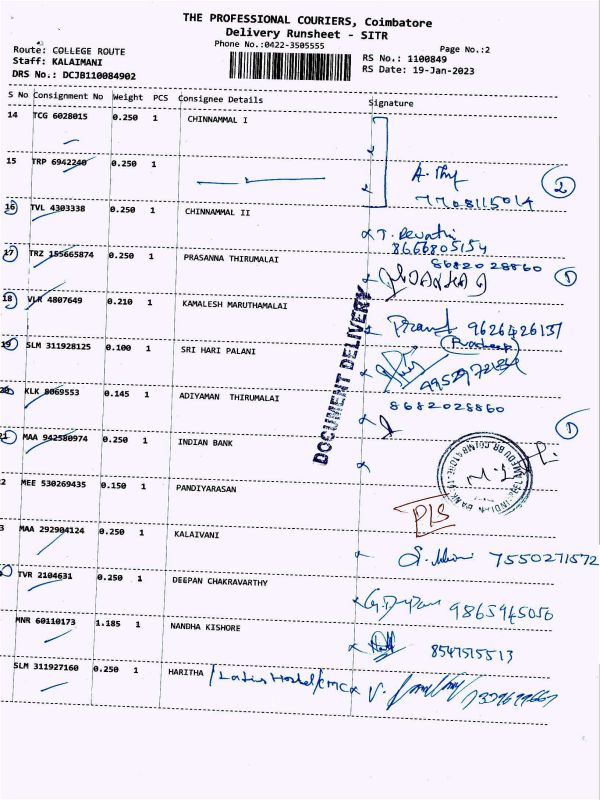 THE PROFESSIONAL COURIERS, Coimbatore
Delivery Runsheet - SITR
Phone No.:0422-3505555
Page No.:2
Route: COLLEGE ROUTE
Staff: KALAIMANI
DRS No.: DCJB110084902
RS No.: 1100849
RS Date: 19-Jan-2023
S No Consignment No Weight PCS Consignee Details Signature
14 TCG 6028015 0.250 1 CHINNAMMAL I
15 TRP 6942240 0.250 1
7708115014
2
16 TVL 4303338 0.250 1 CHINNAMMAL II
T. Revathi
8666805154
17 TRZ 155665874 0.250 1 PRASANNA THIRUMALAI
8682028860
1
18 VLR 4807649 0.210 1 KAMALESH MARUTHAMALAI
9626426137
19 SLM 311928125 0.100 1 SRI HARI PALANI
20 KLK 8069553 0.145 1 ADIYAMAN THIRUMALAI
8682028860
1
21 MAA 942580974 0.250 1 INDIAN BANK
DOCUMENT DELIVERY
2 MEE 530269435 0.150 1 PANDIYARASAN
3 MAA 292904124 0.250 1 KALAIVANI
7550271572
TVR 2104631 0.250 1 DEEPAN CHAKRAVARTHY
9865945056
MNR 60110173 1.185 1 NANDHA KISHORE
8547515513
SLM 311927160 0.250 1 HARITHA